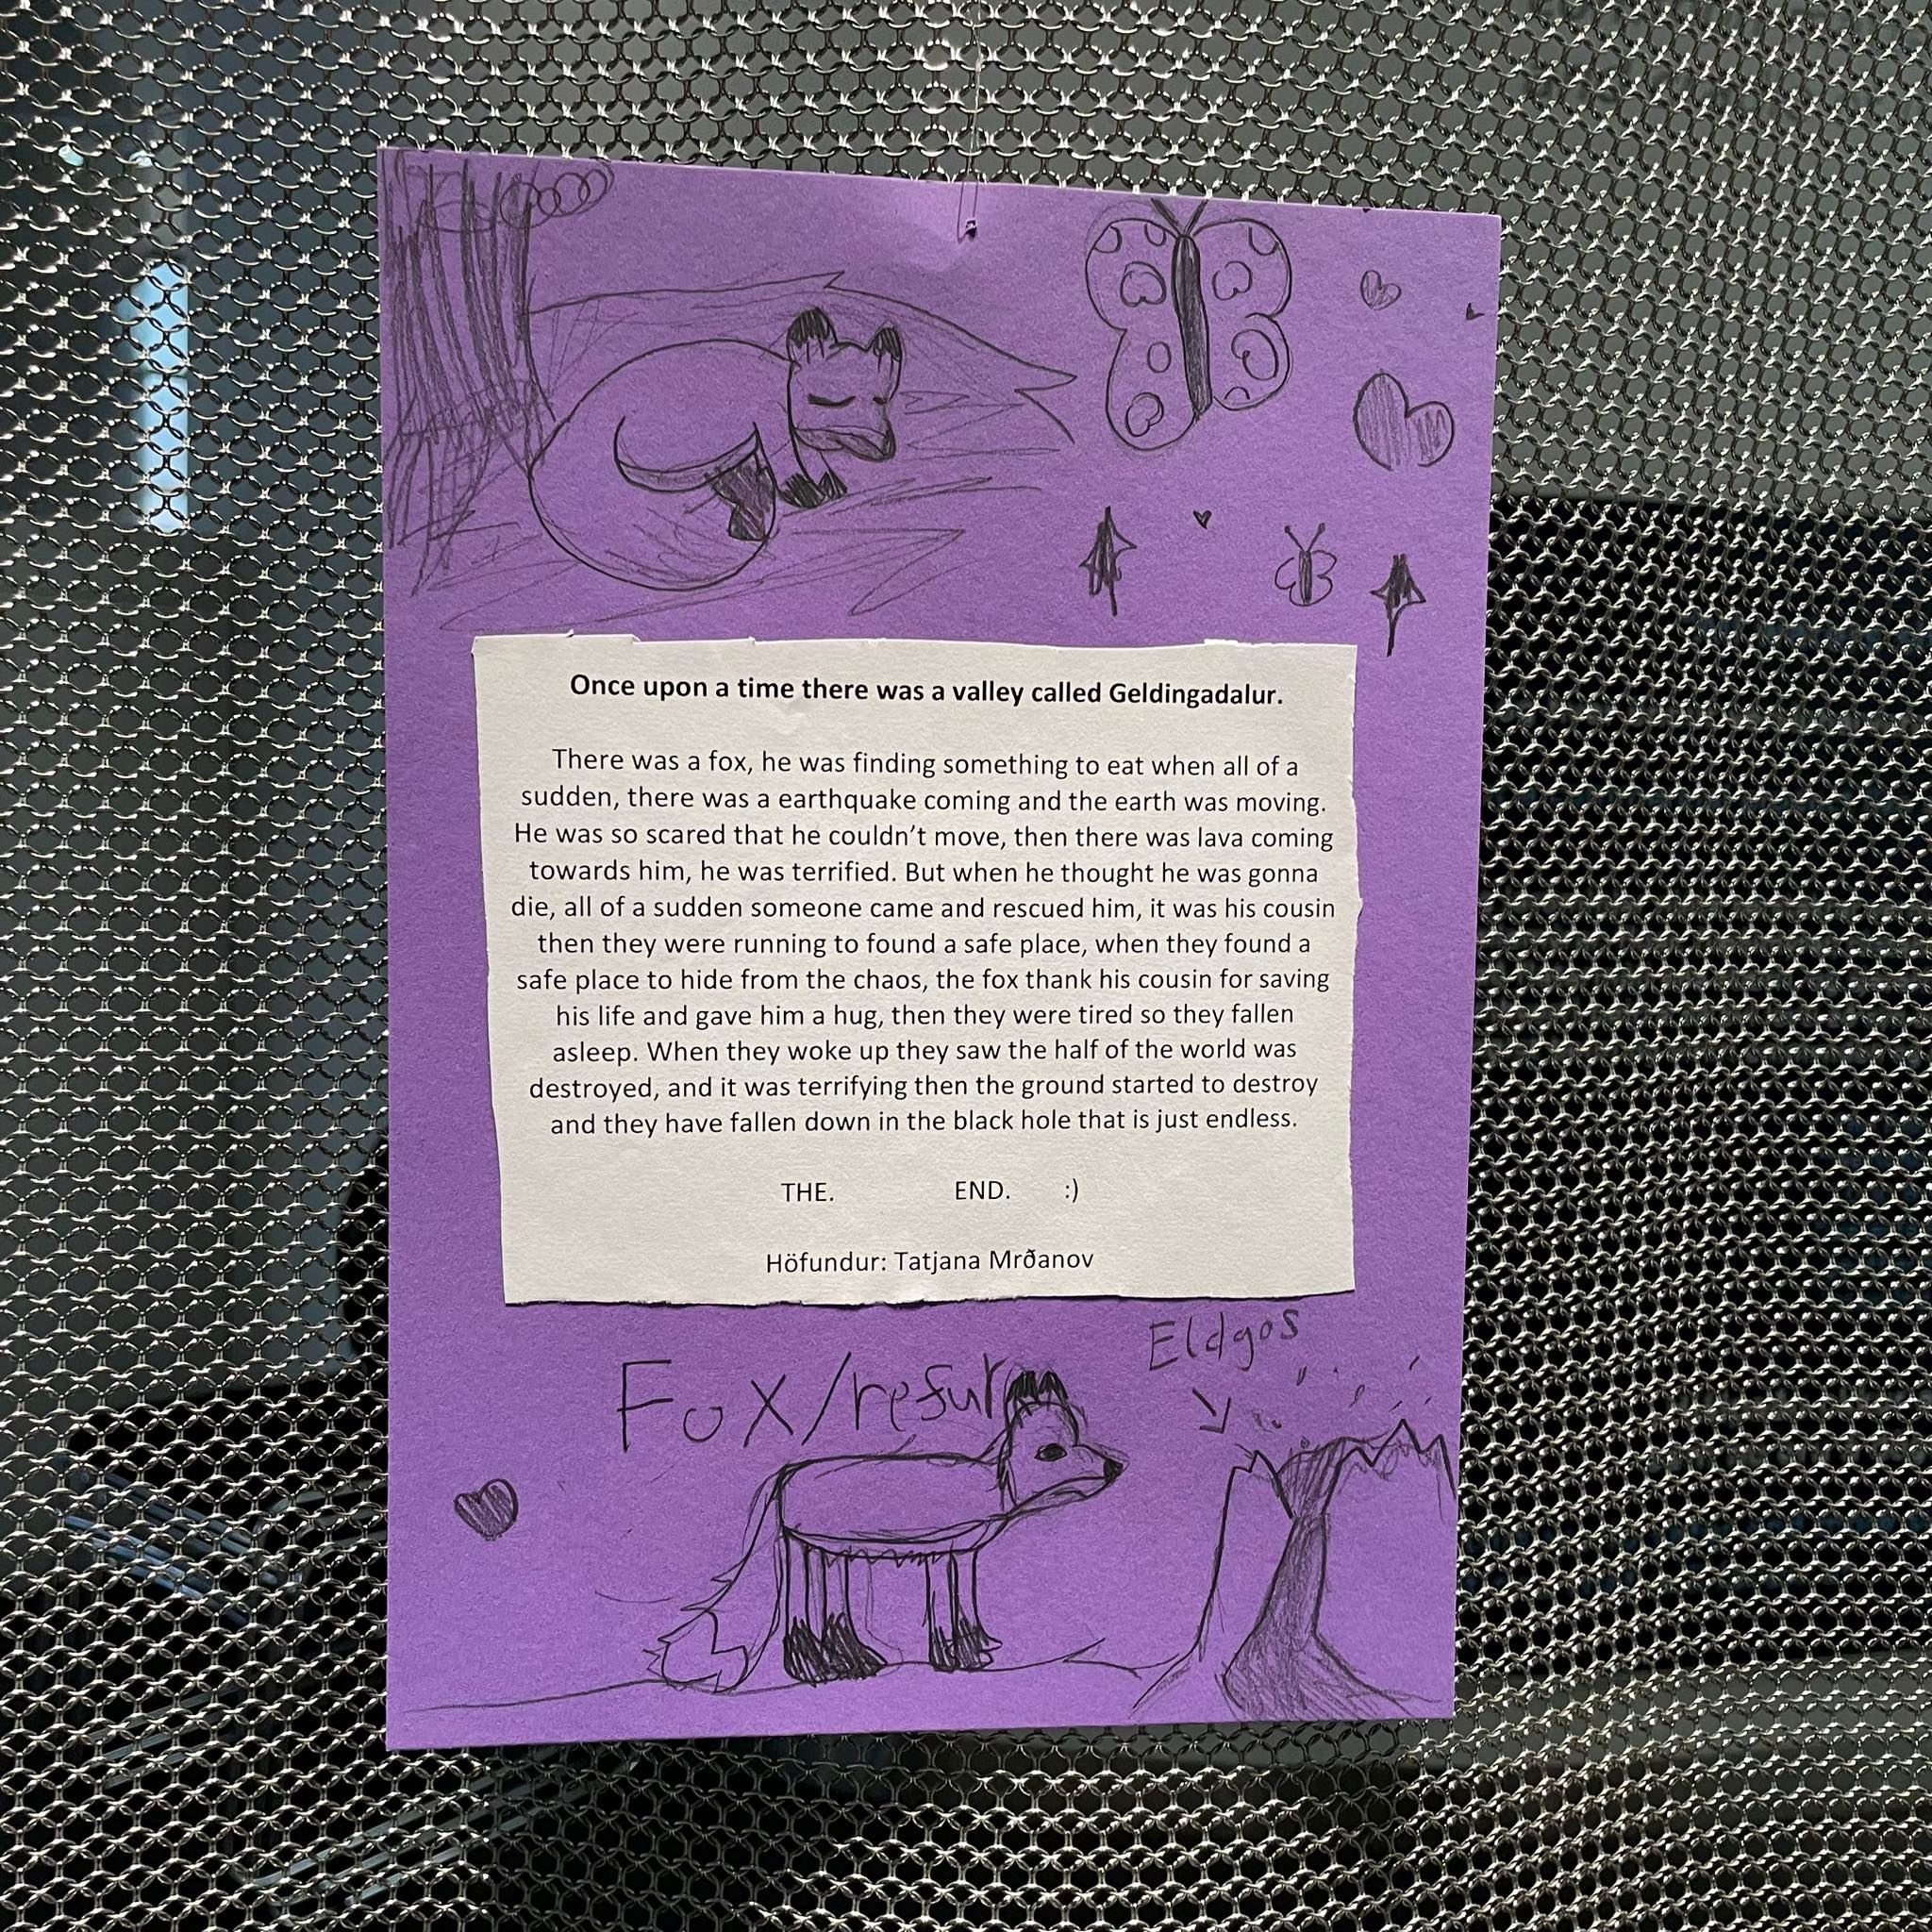 Once upon a time there was a valley called Geldingadalur.
There was a fox, he was finding something to eat when all of a
sudden, there was a earthquake coming and the earth was moving.
He was so scared that he couldn't move, then there was lava coming
towards him, he was terrified. But when he thought he was gonna
die, all of a sudden someone came and rescued him, it was his cousin
then they were running to found a safe place, when they found a
safe place to hide from the chaos, the fox thank his cousin for saving
his life and gave him a hug, then they were tired so they fallen
asleep. When they woke up they saw the half of the world was
destroyed, and it was terrifying then the ground started to destroy
and they have fallen down in the black hole that is just endless.
THE. END. :)
Höfundur: Tatjana Mrðanov
Eldgos
Fox/refur